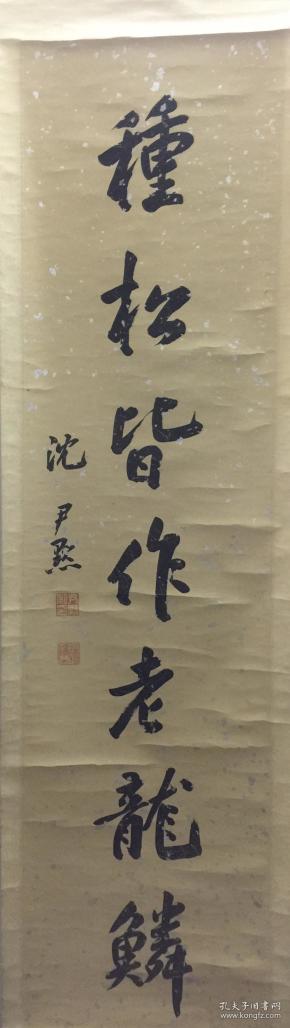 種松皆作老龍鱗
沈尹默
孔夫子旧书网
www.kongfz.com